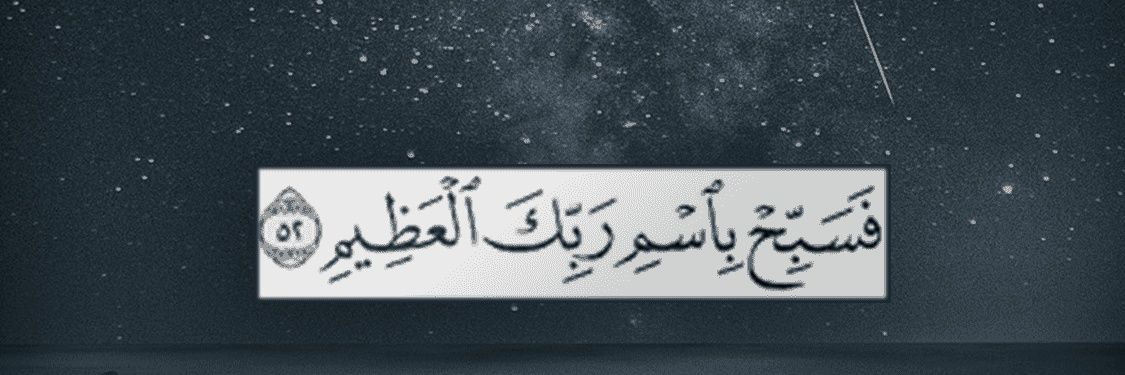 فَسَبِّحْ بِٱسْمِ رَبِّكَ ٱلْعَظِيمِ ٥٢